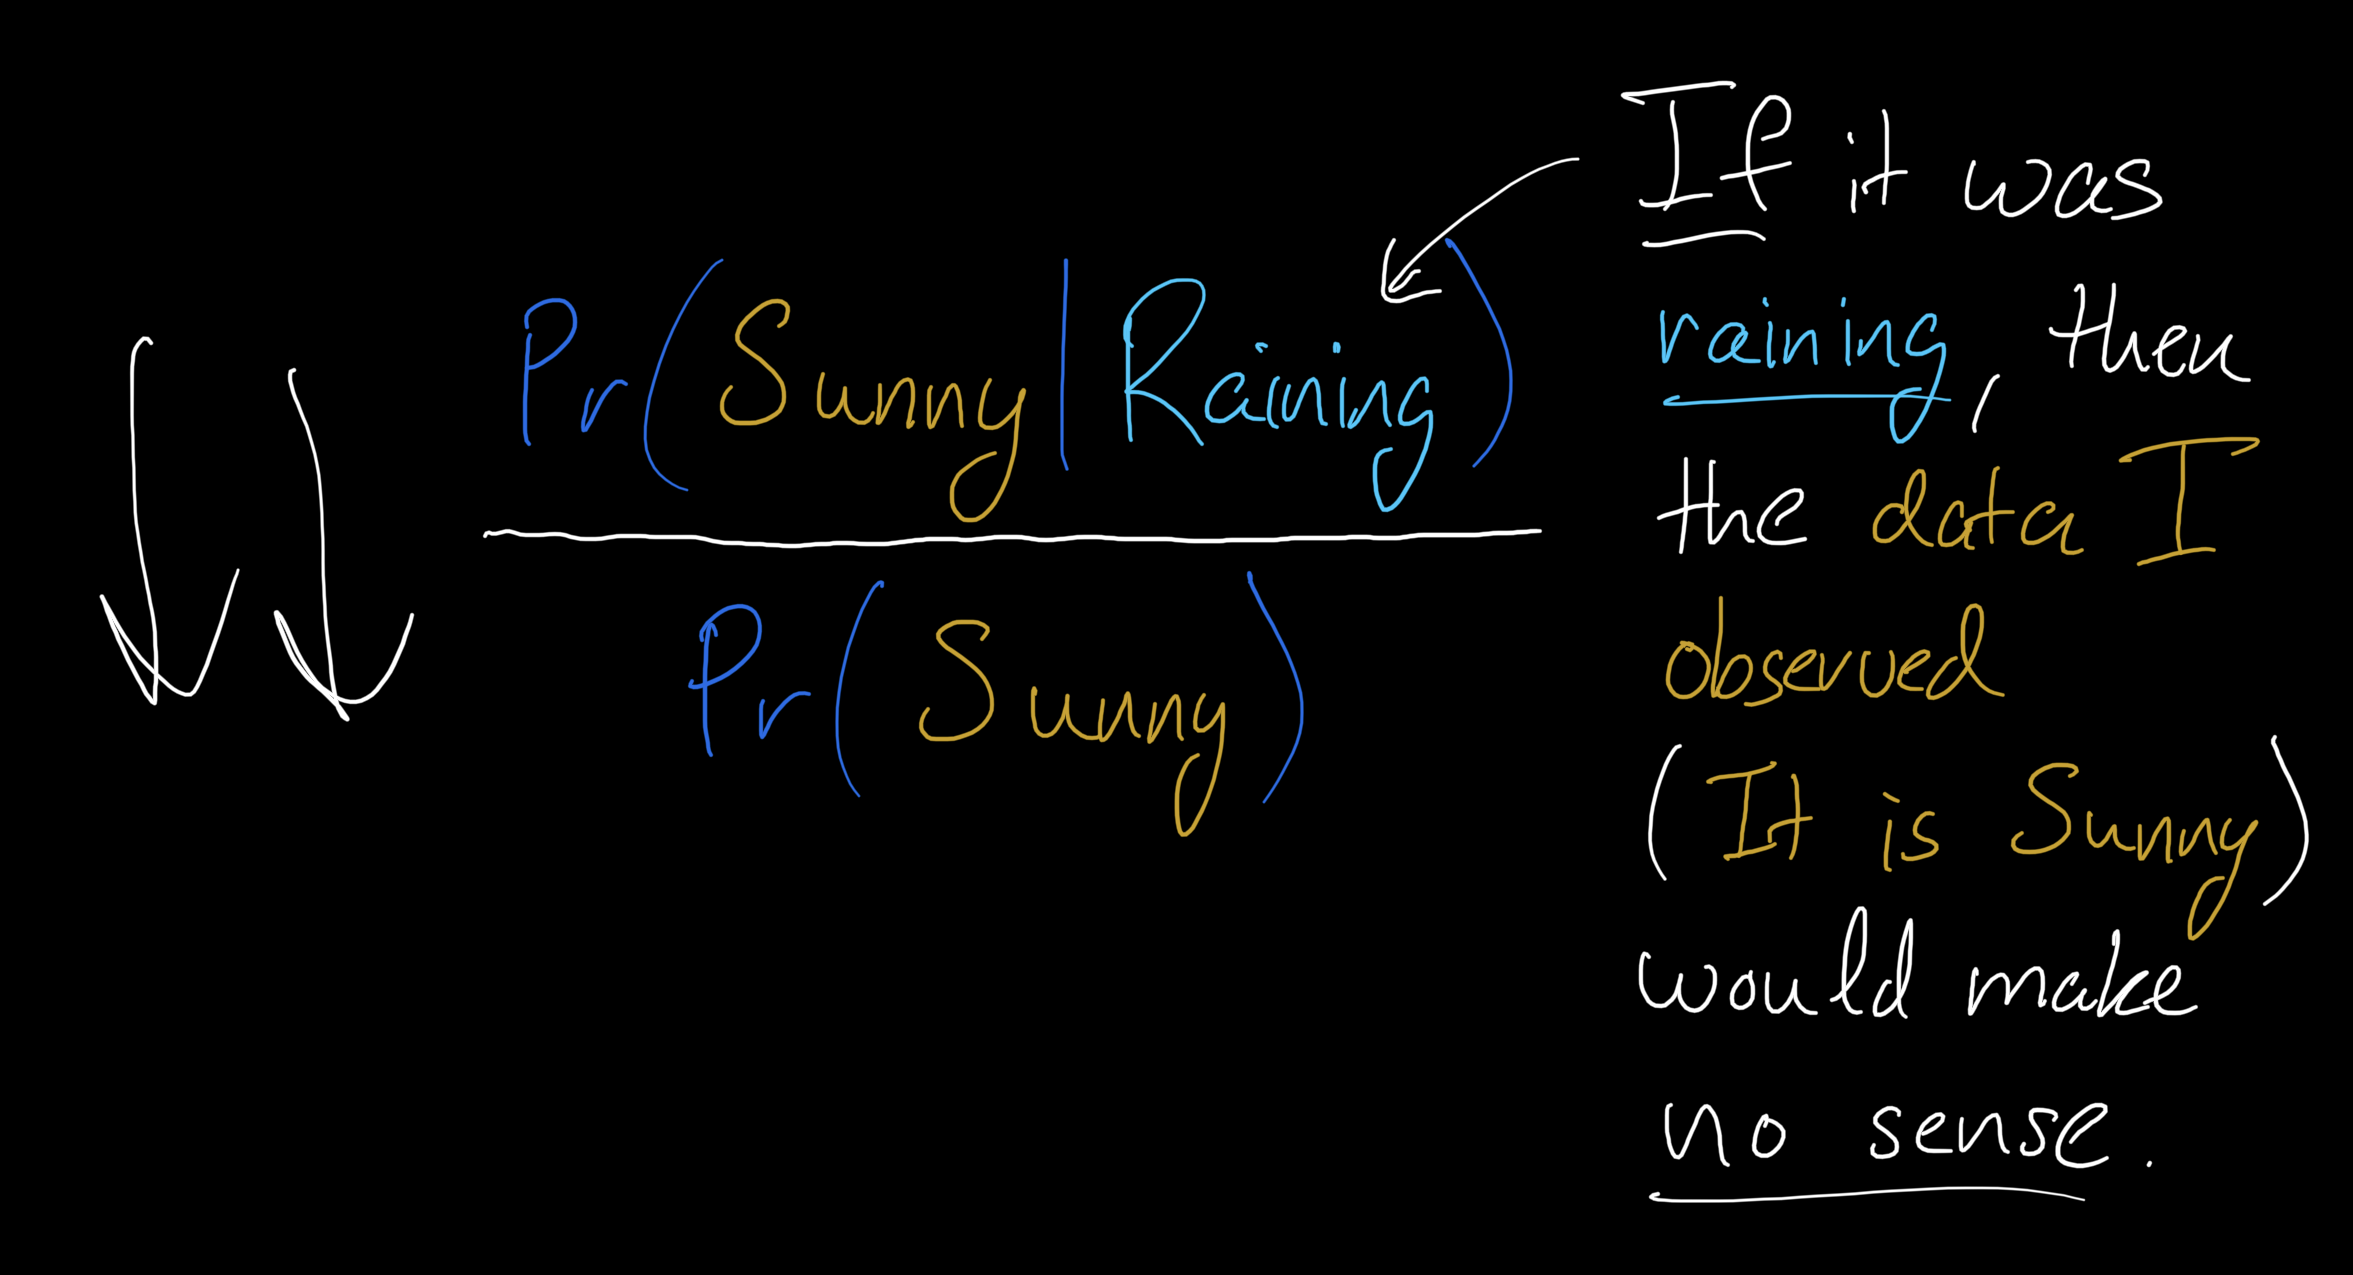 Pr(Sunny|Raining)
Pr(Sunny)
If it was
raining, then
the data I
observed
(It is Sunny)
would make
no sense.